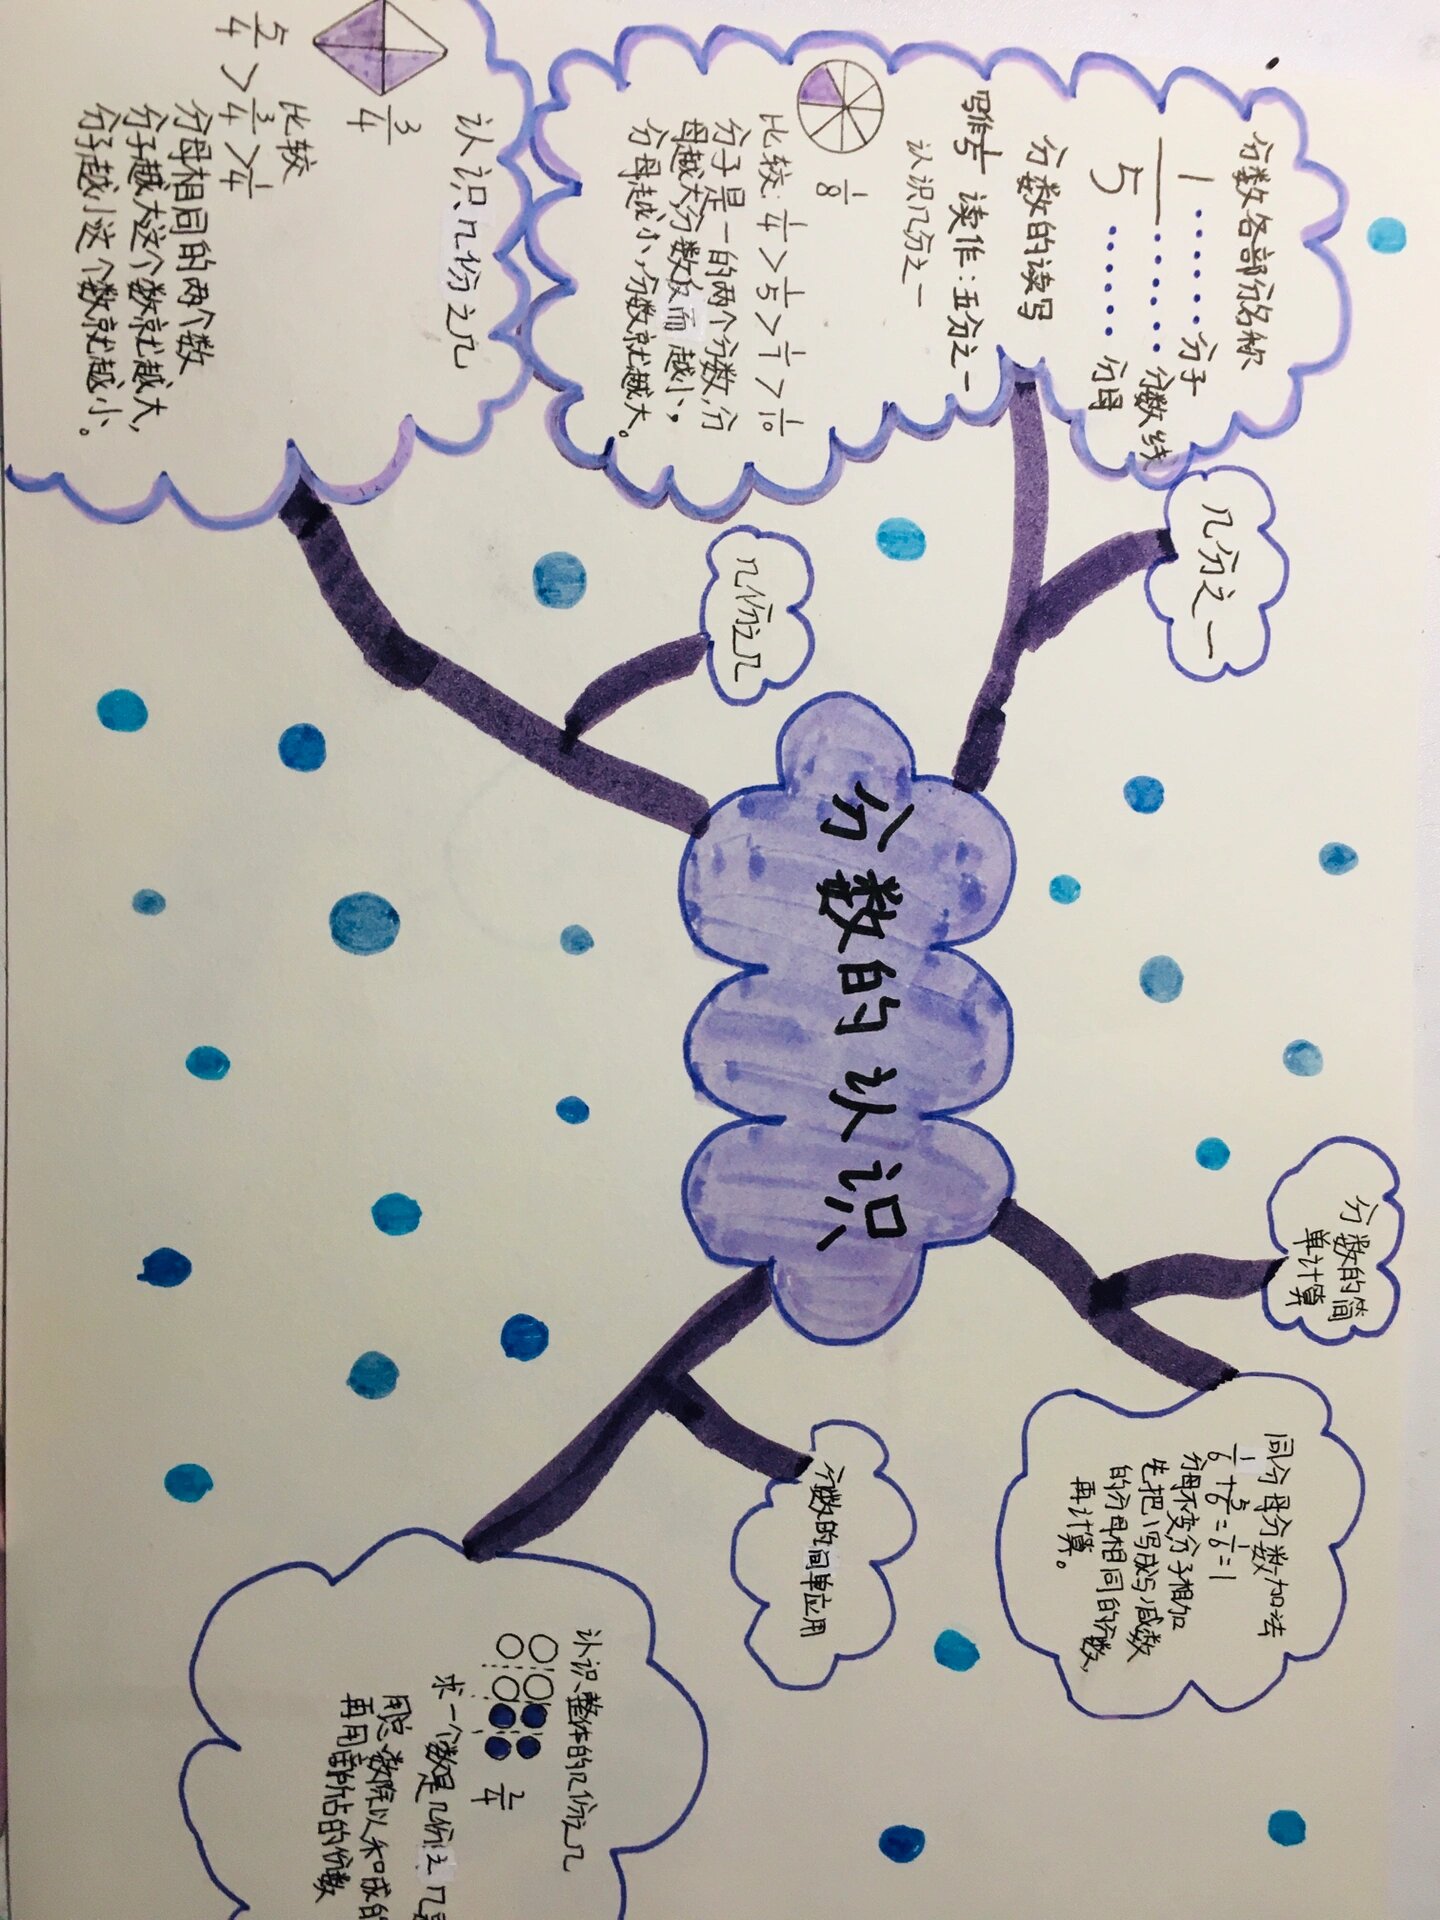 分数的认识
几分之一
分数各部份名称
1……分子
—……分数线
5……分母
分数的读写
写作1/5 读作:五分之一
认识几份之一
1/8
比较:1/4>1/5>1/7>1/10
分子是一的两个分数,分
母越大分数反而越小,
分母越小,分数就越大。
几份之几
认识几份之几
3/4
比较
5/4>3/4>1/4
分母相同的两个数
分子越大这个数就越大,
分子越小这个数就越小。
分数的简
单计算
同分母分数加法
分母不变分子相加
先把1写成与减数
的分母相同的分数,
再计算。
分数的简单应用
认识整体的几份之几
2/4
求一个数是几份之几
用总数除以和成的
再用所占的份数